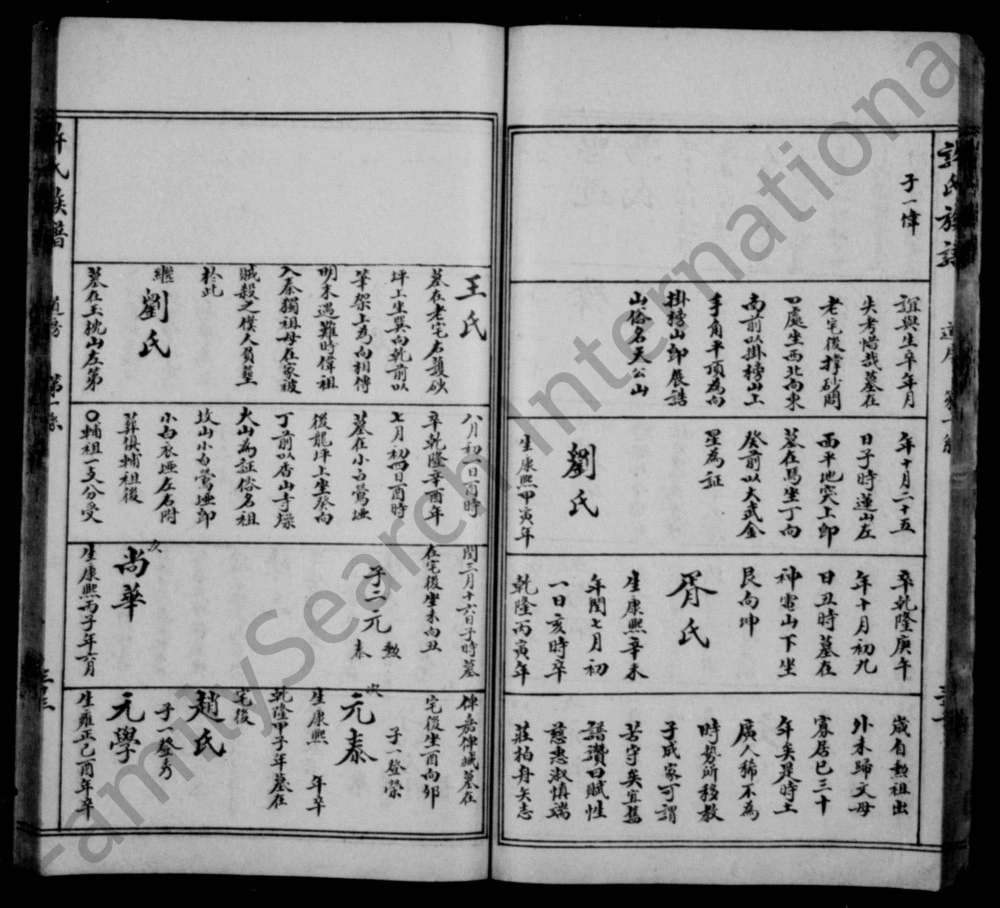 許氏族譜
子一偉
誼與生卒年月
失考惜哉墓在
老宅後撑砂間
凹處坐西北向東
南前以掛榜山上
手角平頂為向
掛榜山即展誥
山俗名天公山
年十月二十五
日子時蓮山左
西平地突上卯
墓在馬坐丁向
癸前以大武金
星為証
劉氏
生康熙甲寅年
卒乾隆庚午
年十月初九
日丑時墓在
神電山下坐
艮向坤
胥氏
生康熙辛未
年閏七月初
一日亥時卒
乾隆丙寅年
歲自勲祖出
外未歸文母
寡居已三十
年矣是時土
廣人稀不為
時勢所移教
子成家可謂
苦守矣宜舊
譜讚曰賦性
慈惠淑慎端
莊柏舟矢志
王氏
墓在老宅右護砂
坪上坐巽向乾前以
筆架上為向相傳
明末遇難時偉祖
入秦獨祖母在家被
賊殺之僕人負塟
於此
繼劉氏
墓在玉枕山左第
八月初一日酉時
卒乾隆辛酉年
七月初四日酉時
墓在小白鶯埡
後龍坪上坐癸向
丁前以香山寺燥
火山為証俗名祖
坟山小白鶯埡即
小白衣埡左右附
葬慎輔祖後
○輔祖一支分受
閏三月十六日子時墓
在宅後坐未向丑
子二元 勲 泰
次
尚華
生康熙丙子年六月
俾嘉俾臧墓在
宅後坐酉向卯
子一登榮
次
元泰
生康熙 年卒
乾隆甲子年墓在
宅後
趙氏
子一登秀
元學
生雍正己酉年卒
許氏族譜
FamilySearch International